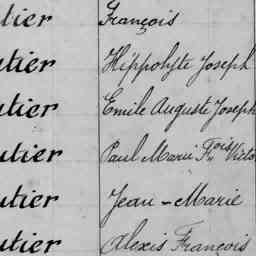 utier François
utier Hippolyte Joseph
utier Emile Auguste Joseph
utier Paul Marie Fois Victo
utier Jean-Marie
utier Alexis François